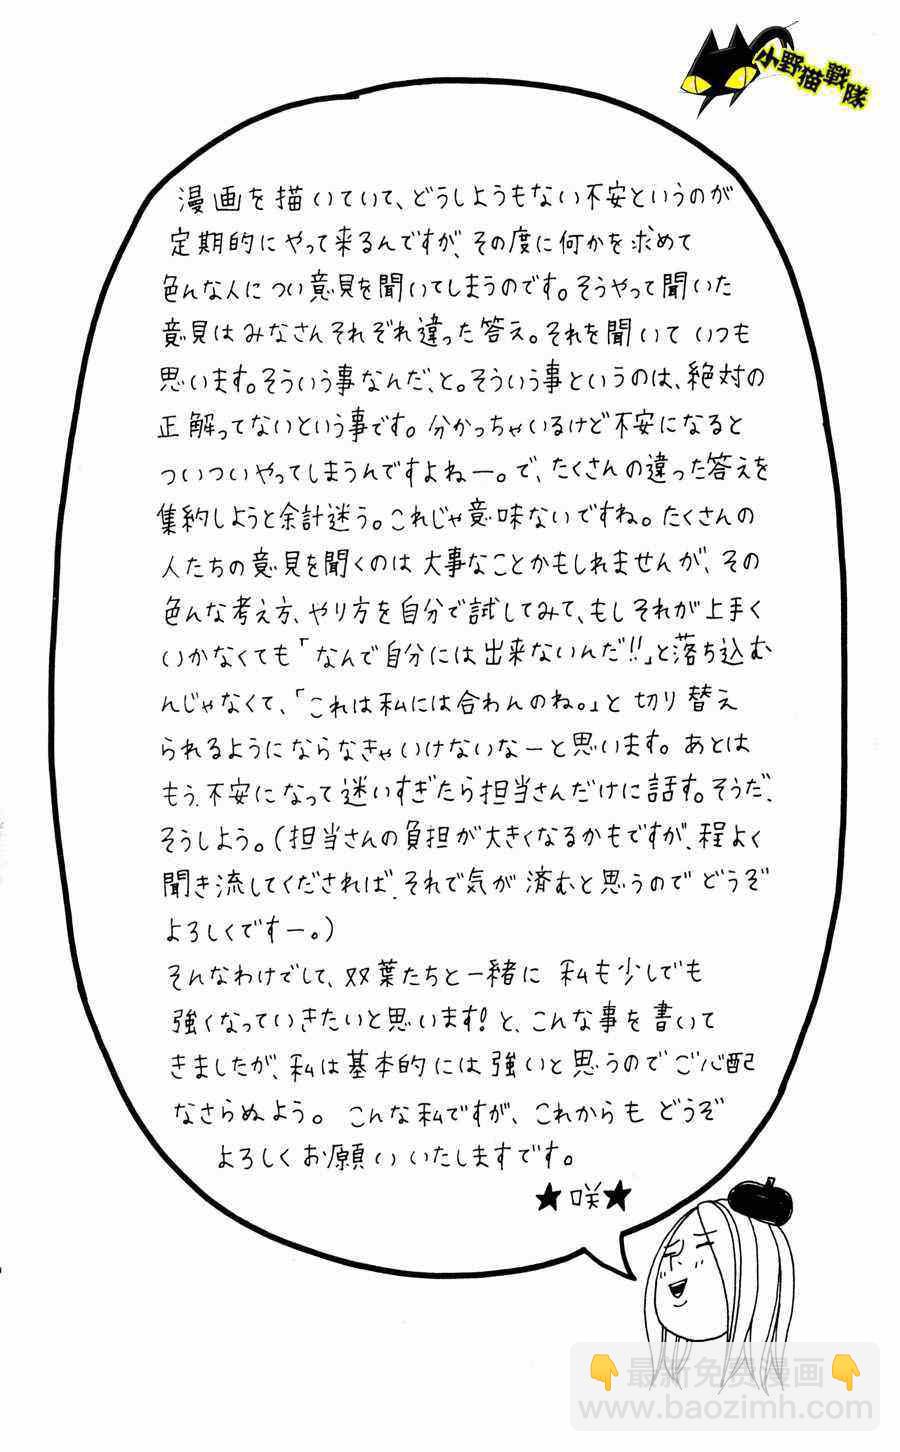 小野猫戰隊
漫画を描いていて、どうしようもない不安というのが
定期的にやって来るんですが、その度に何かを求めて
色んな人につい意見を聞いてしまうのです。そうやって聞いた
意見はみなさんそれぞれ違った答え。それを聞いていつも
思います。そういう事なんだ、と。そういう事というのは、絶対の
正解ってないという事です。分かっちゃいるけど不安になると
ついついやってしまうんですよねー。で、たくさんの違った答えを
集約しようと余計迷う。これじゃ意味ないですね。たくさんの
人たちの意見を聞くのは大事なことかもしれませんが、その
色んな考え方、やり方を自分で試してみて、もしそれが上手く
いかなくても「なんで自分には出来ないんだ!!」と落ち込む
んじゃなくて、「これは私には合わんのね。」と切り替え
られるようにならなきゃいけないなーと思います。あとは
もう、不安になって迷いすぎたら担当さんだけに話す。そうだ、
そうしよう。(担当さんの負担が大きくなるかもですが、程よく
聞き流してくだされば、それで気が済むと思うのでどうぞ
よろしくですー。)
そんなわけでして、双葉たちと一緒に私も少しでも
強くなっていきたいと思います!と、こんな事を書いて
きましたが、私は基本的には強いと思うのでご心配
なさらぬよう。こんな私ですが、これからもどうぞ
よろしくお願いいたしますです。
★咲★
👇最新免费漫画👇
www.baozimh.com